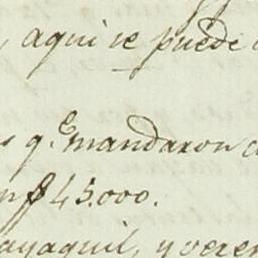 , aqui se puede
q.e mandaron
$ 45.000.
ayaquil, y veren